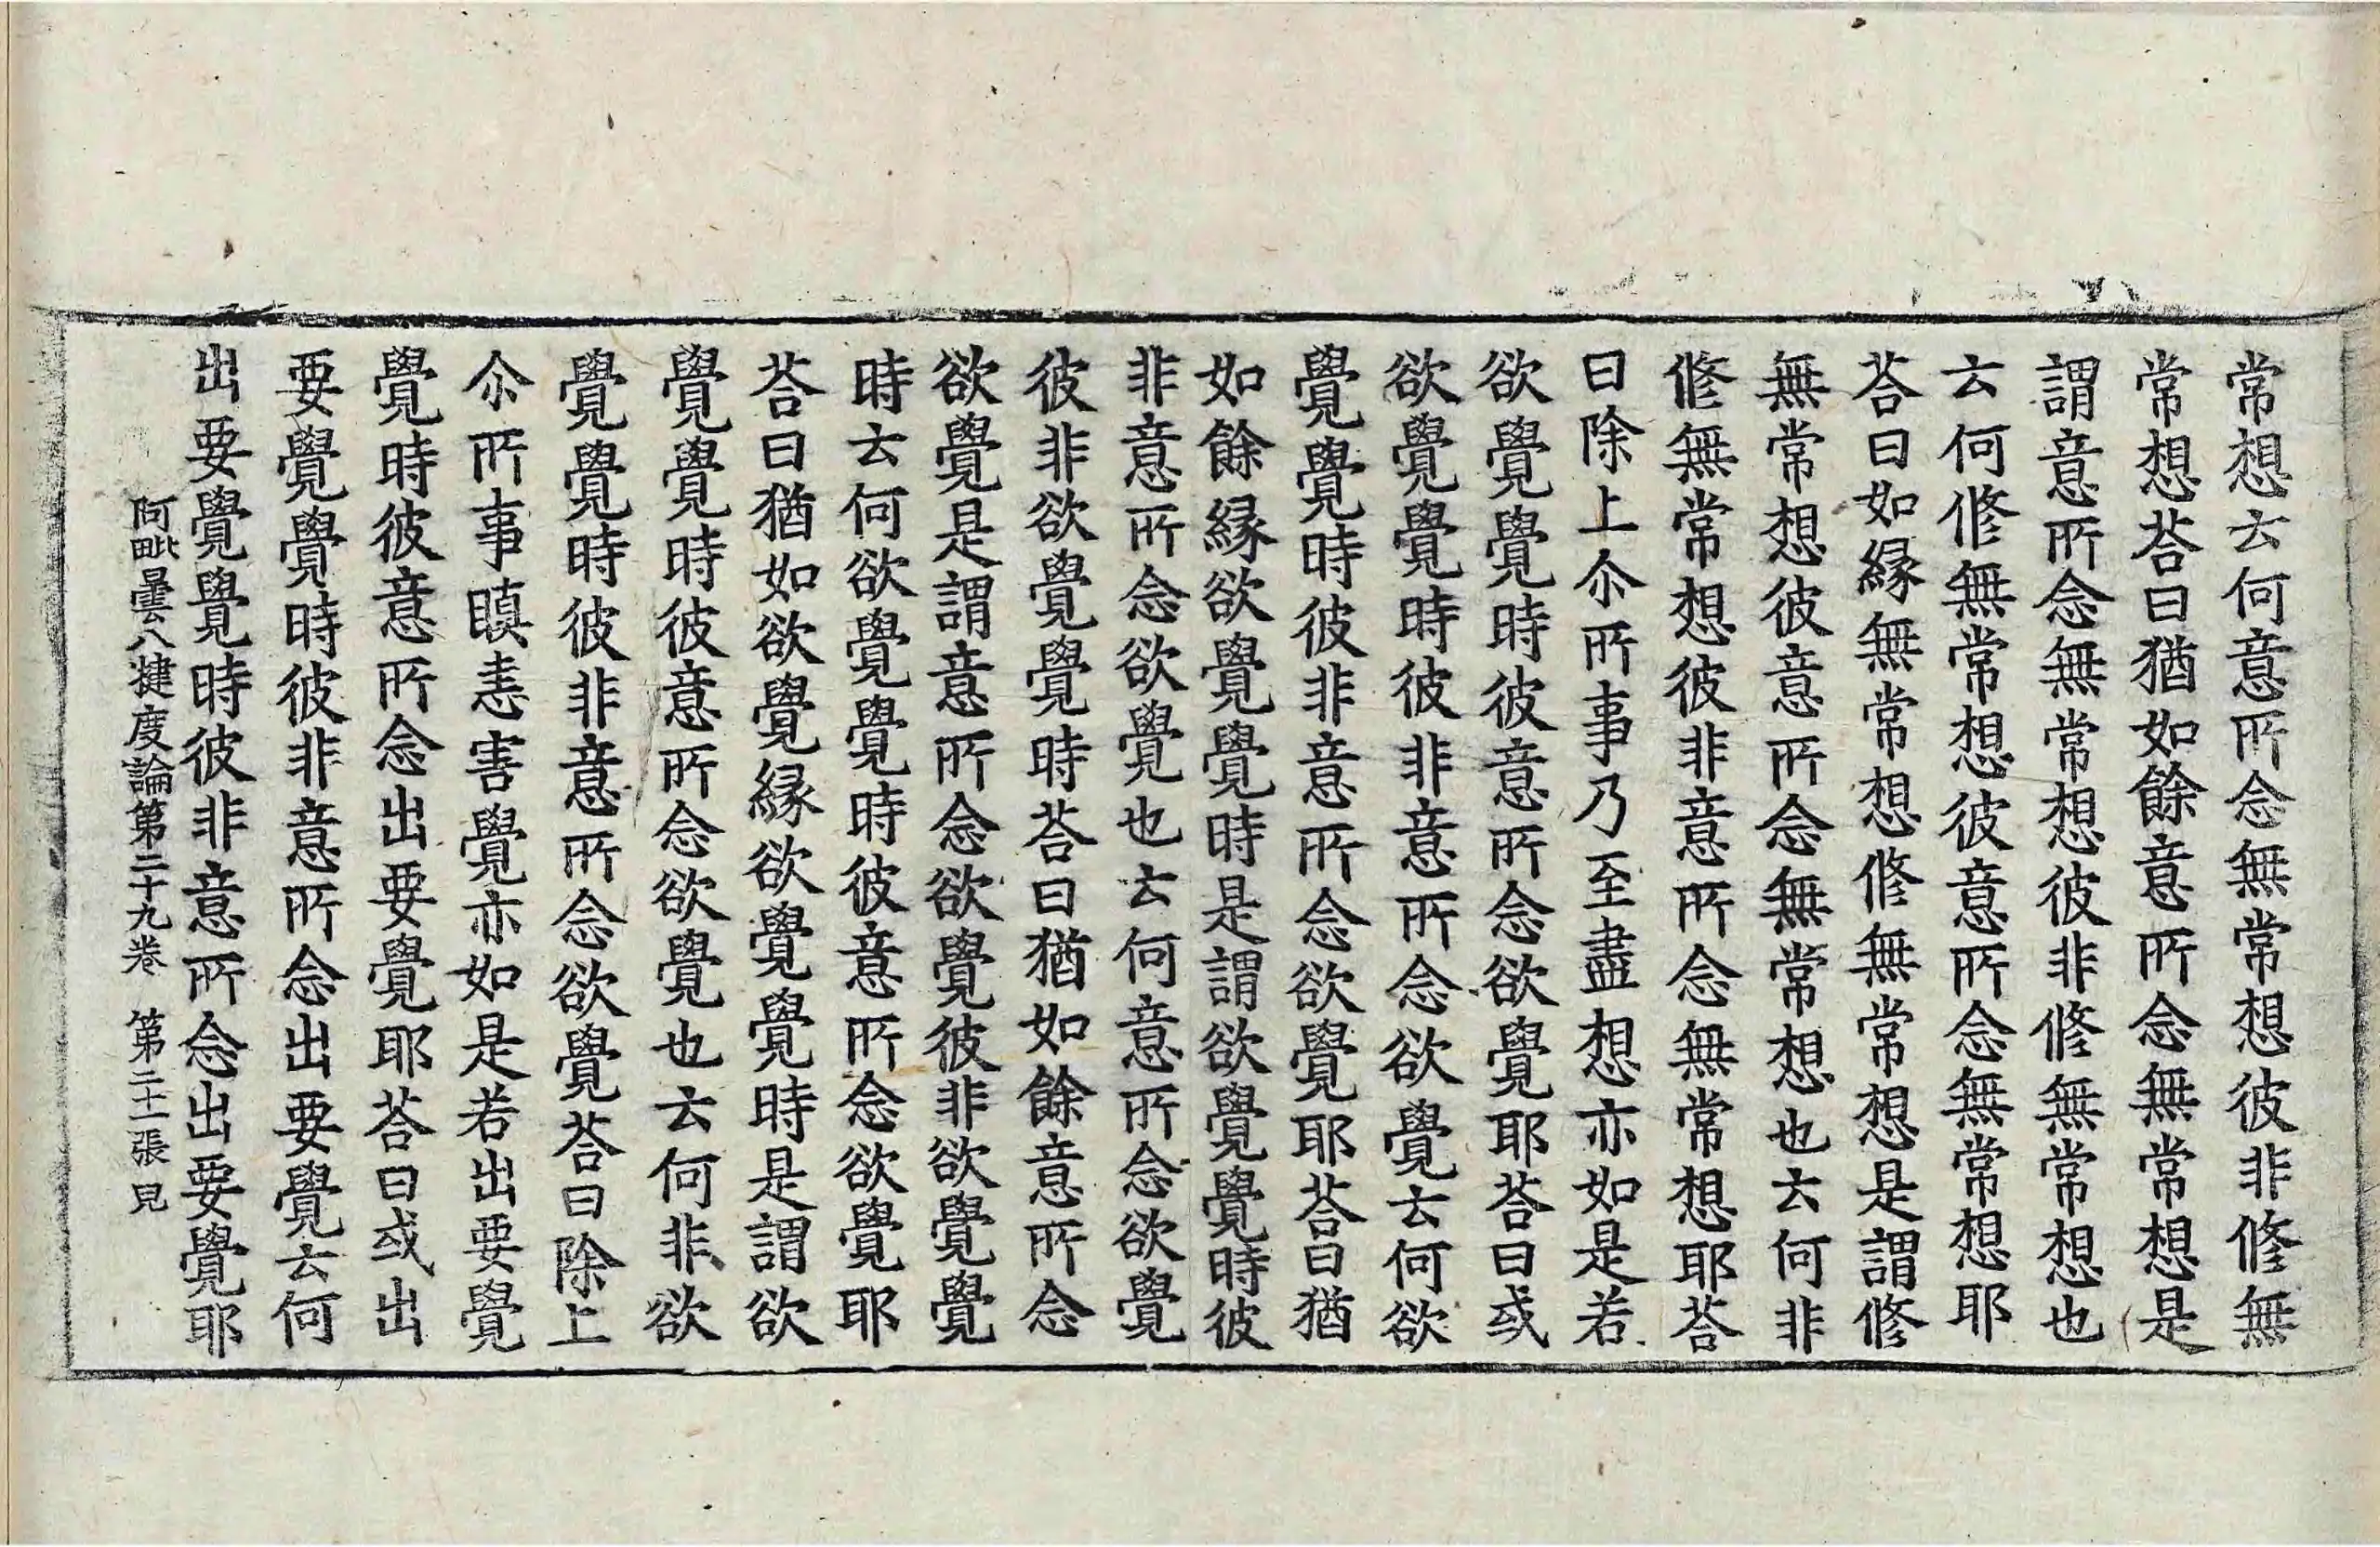 常想云何意所念無常想彼非修無
常想荅曰猶如餘意所念無常想是
謂意所念無常想彼非修無常想也
云何修無常想彼意所念無常想耶
荅曰如緣無常想修無常想是謂修
無常想彼意所念無常想也云何非
修無常想彼非意所念無常想耶荅
曰除上尒所事乃至盡想亦如是若
欲覺覺時彼意所念欲覺耶荅曰或
欲覺覺時彼非意所念欲覺云何欲
覺覺時彼非意所念欲覺耶荅曰猶
如餘緣欲覺覺時是謂欲覺覺時彼
非意所念欲覺也云何意所念欲覺
彼非欲覺覺時荅曰猶如餘意所念
欲覺是謂意所念欲覺彼非欲覺覺
時云何欲覺覺時彼意所念欲覺耶
荅曰猶如欲覺緣欲覺覺時是謂欲
覺覺時彼意所念欲覺也云何非欲
覺覺時彼非意所念欲覺荅曰除上
尒所事瞋恚害覺亦如是若出要覺
覺時彼意所念出要覺耶荅曰或出
要覺覺時彼非意所念出要覺云何
出要覺覺時彼非意所念出出要覺耶
阿毗曇八揵度論第二十九卷 第二十一張 見